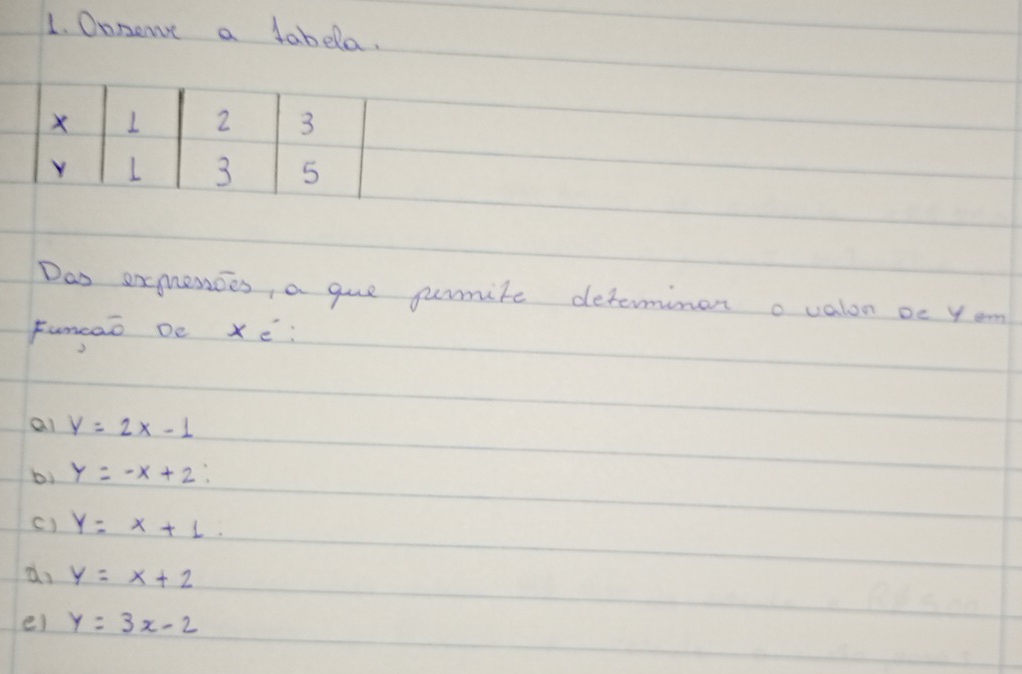 1. Observe a tabela.
X 1 2 3
Y 1 3 5
Das expressões, a que permite determinar o valor de y em
Função de x é:
a) y = 2x - 1
b) y = -x + 2:
c) y = x + 1.
d) y = x + 2
e) y = 3x - 2